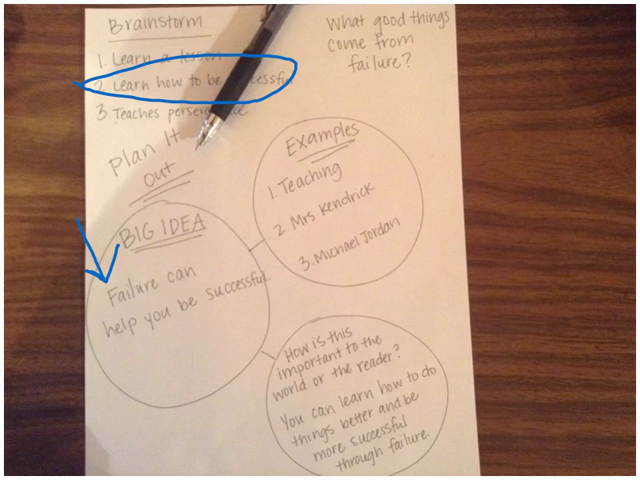 Brainstorm
1. Learn a lesson
2. Learn how to be
3. Teaches
What good things
come from
failure?
Plan It
Out
BIG IDEA
Failure can
help you be successful.
Examples
1. Teaching
2 Mrs. Kendrick
3. Michael Jordan
How is this
important to the
world or the reader?
You can learn how to do
things better and be
more successful
through failure.